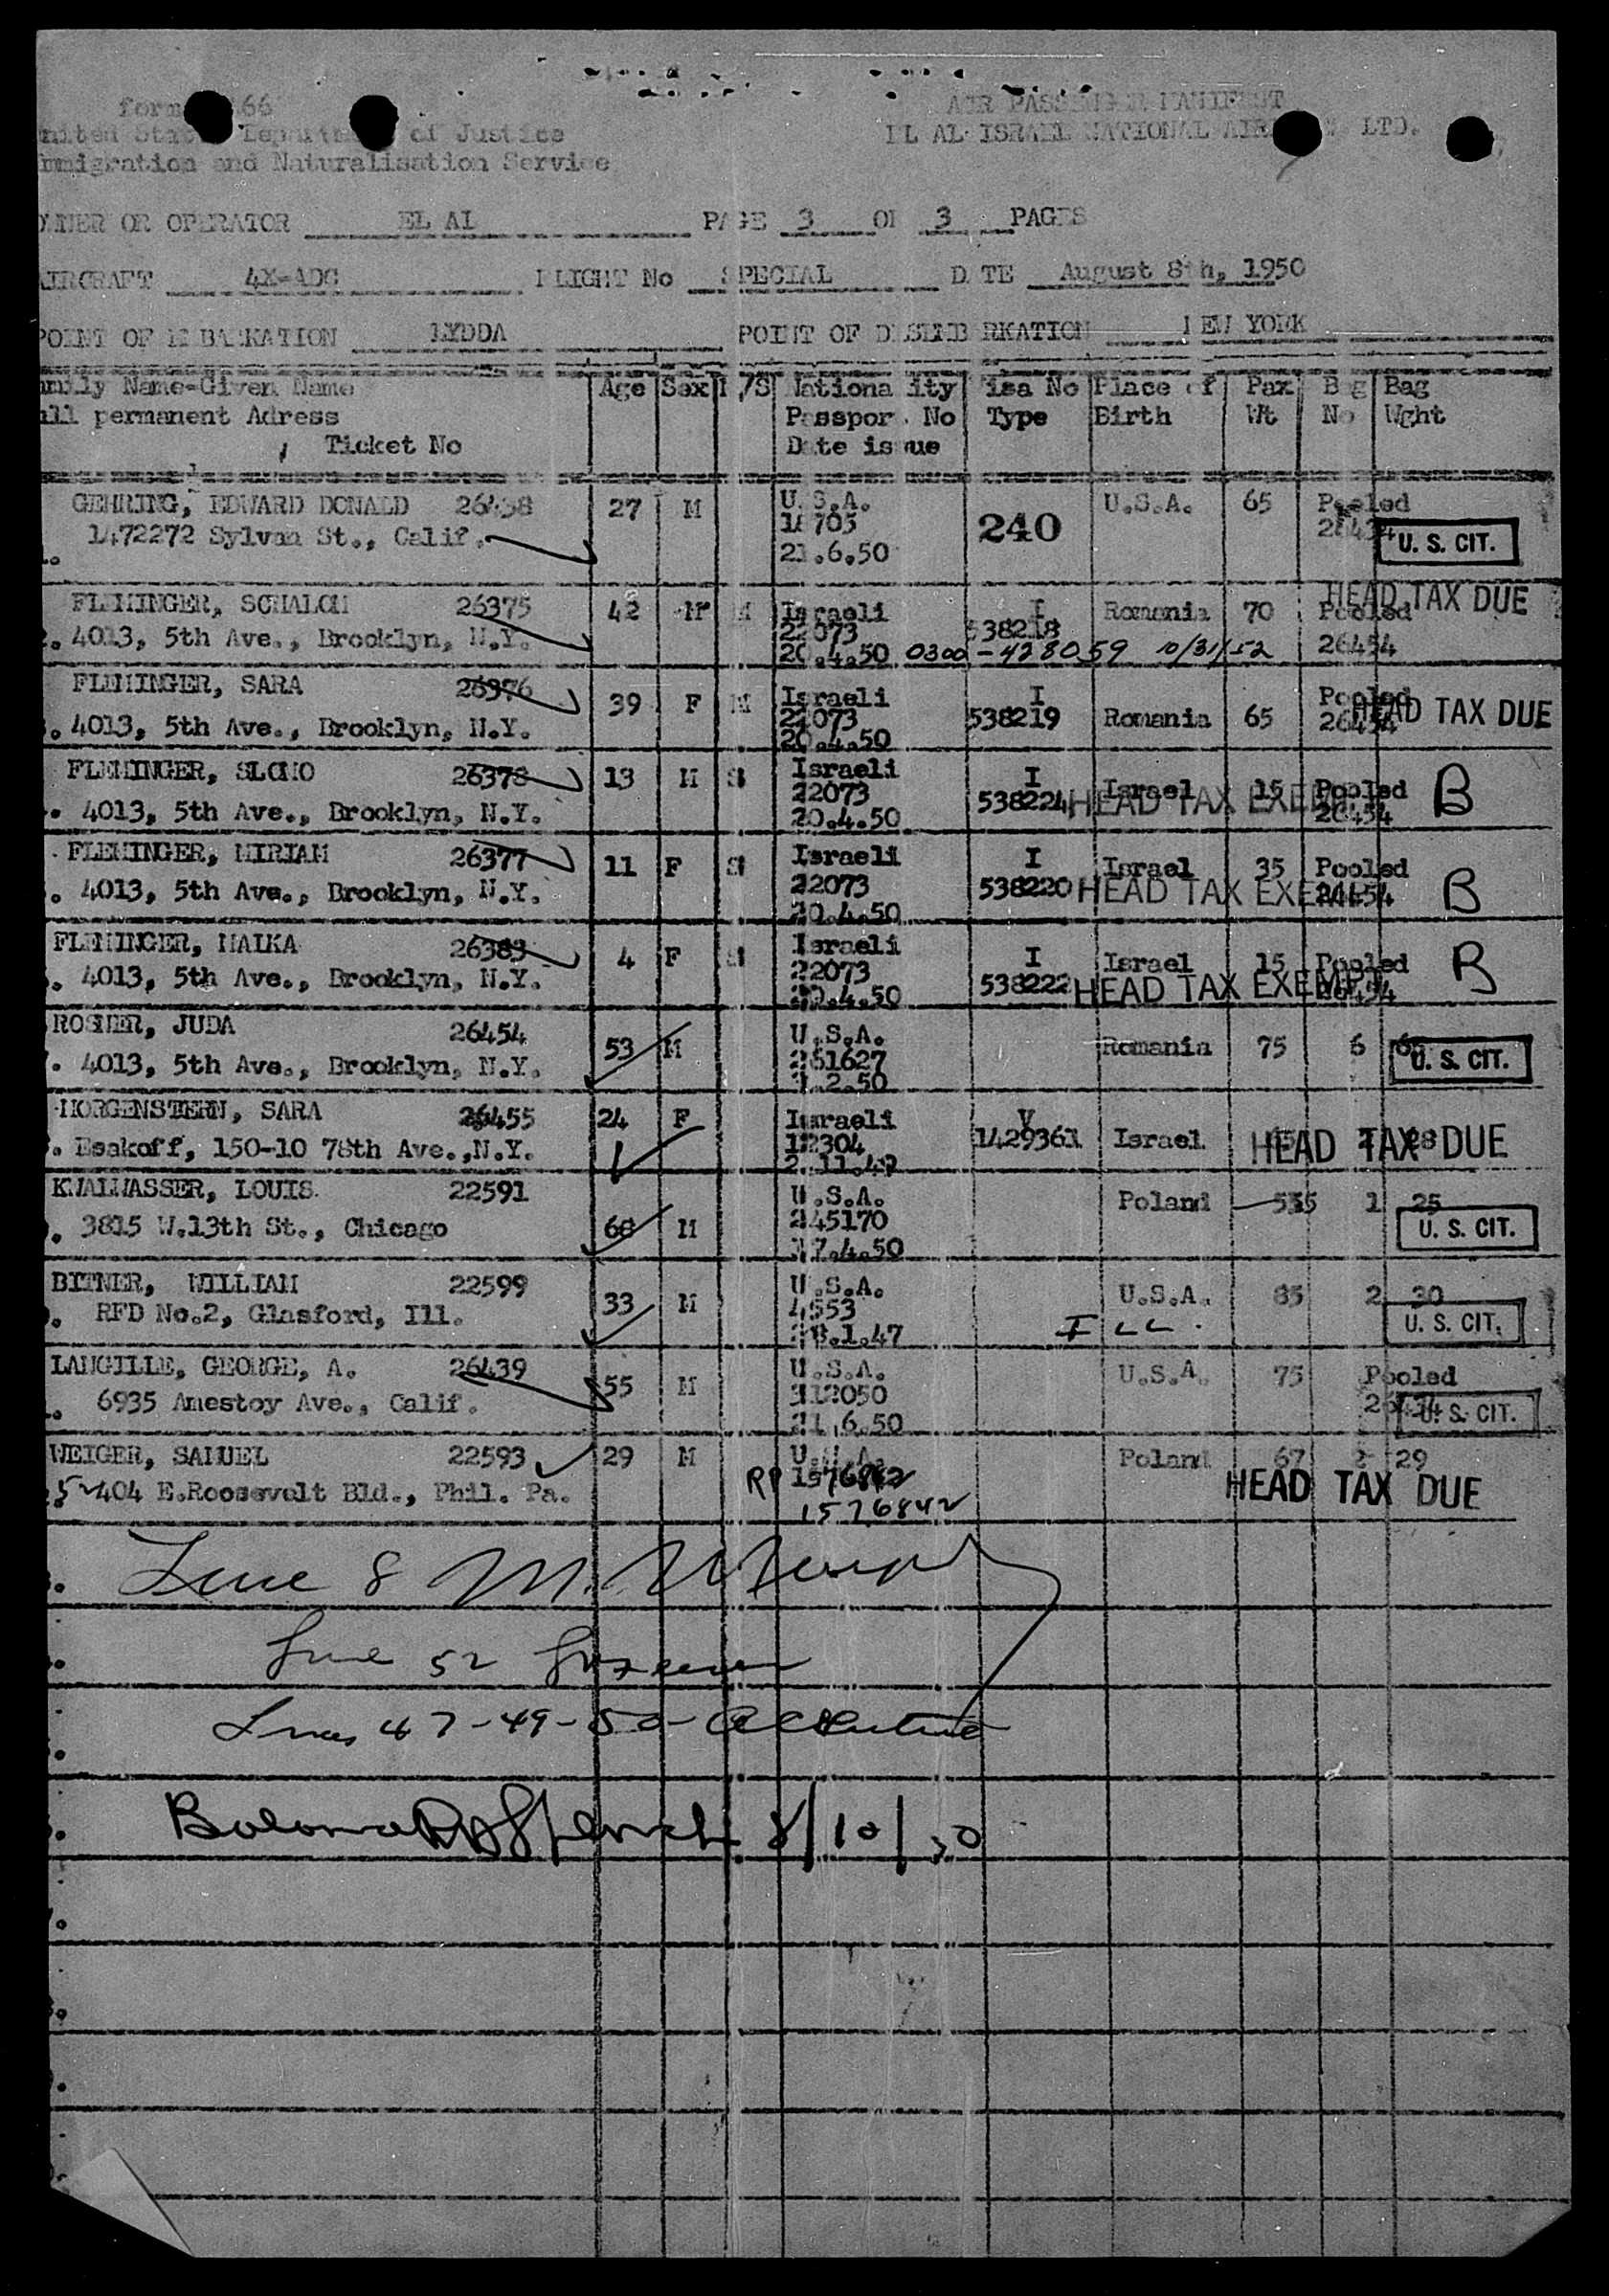 AIR PASSENGER MANIFEST
United States Department of Justice
EL AL ISRAEL NATIONAL LTD.
Immigration and Naturalisation Service
OWNER OR OPERATOR EL AL PAGE 3 OF 3 PAGES
AIRCRAFT 4X-ADG FLIGHT No SPECIAL DATE August 8th, 1950
POINT OF EMBARKATION LYDDA POINT OF DISEMBARKATION NEW YORK
Family Name-Given Name Age Sex M/S Nationality Visa No Place of Pax Bag Bag
full permanent Adress Passport No Type Birth Wt No Wght
Ticket No Date issue
GEHRING, EDWARD DONALD 26438 27 M U.S.A. 240 U.S.A. 65 Pooled
1472272 Sylvan St., Calif. U. S. CIT.
21.6.50
FLEMINGER, SCHALOM 26375 42 M M Israeli I Romania 70 Pooled HEAD TAX DUE
4013, 5th Ave., Brooklyn, N.Y. 22073 538218 26454
20.4.50 0300-428059 10/31/52
FLEMINGER, SARA 26376 39 F M Israeli I Romania 65 Pooled HEAD TAX DUE
4013, 5th Ave., Brooklyn, N.Y. 22073 538219 26454
20.4.50
FLEMINGER, SLOMO 26378 13 M S Israeli I Israel 15 Pooled B
4013, 5th Ave., Brooklyn, N.Y. 22073 538224 HEAD TAX EXEMPT 26454
20.4.50
FLEMINGER, MIRIAM 26377 11 F S Israeli I Israel 35 Pooled B
4013, 5th Ave., Brooklyn, N.Y. 22073 538220 HEAD TAX EXEMPT 26454
20.4.50
FLEMINGER, MALKA 26383 4 F S Israeli I Israel 15 Pooled B
4013, 5th Ave., Brooklyn, N.Y. 22073 538222 HEAD TAX EXEMPT 26454
20.4.50
ROSNER, JUDA 26454 53 M U.S.A. Romania 75 6
4013, 5th Ave., Brooklyn, N.Y. 261627 U. S. CIT.
2.50
MORGENSTERN, SARA 26455 24 F Israeli V Israel HEAD TAX DUE
Esakoff, 150-10 78th Ave., N.Y. 12304 1429361
KWALWASSER, LOUIS 22591 68 M U.S.A. Poland 1 25
3815 W.13th St., Chicago 245170 U. S. CIT.
17.4.50
BITNER, WILLIAM 22599 33 M U.S.A. U.S.A. 85 2 30
RFD No.2, Glasford, Ill. 4553 ILL. U. S. CIT.
28.1.47
LANGILLE, GEORGE, A. 26439 55 M U.S.A. U.S.A. 75 Pooled
6935 Amestoy Ave., Calif. 312050 U. S. CIT.
21.6.50
WEIGER, SAMUEL 22593 29 M Poland 67 2 29
404 E.Roosevelt Bld., Phil. Pa. RP HEAD TAX DUE
1576842
Line 8 M.
Line 52
Lines 47-49-50-
8/10/50